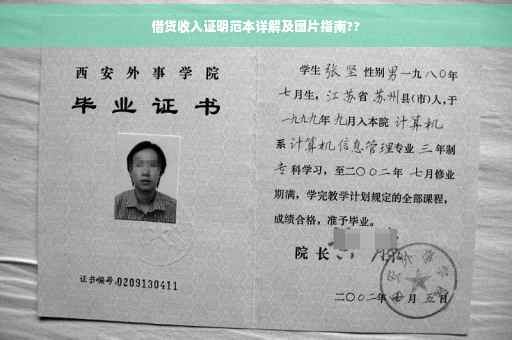 借贷收入证明范本详解及图片指南??
西安外事学院
毕业证书
证书编号:0209130411
学生 张坚 性别 男 一九八〇年
七月生，江苏省 苏州县(市)人，于
一九九九年 九月入本院 计算机
系 计算机信息管理专业 三 年制
专科学习，至二〇〇二年 七月修业
期满，学完教学计划规定的全部课程，
成绩合格，准予毕业。
院长
二〇〇二年 月 五日